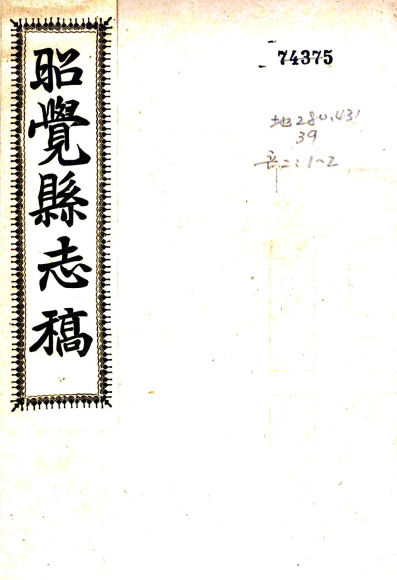 昭覺縣志稿
74375
地280.431
39
:1~2